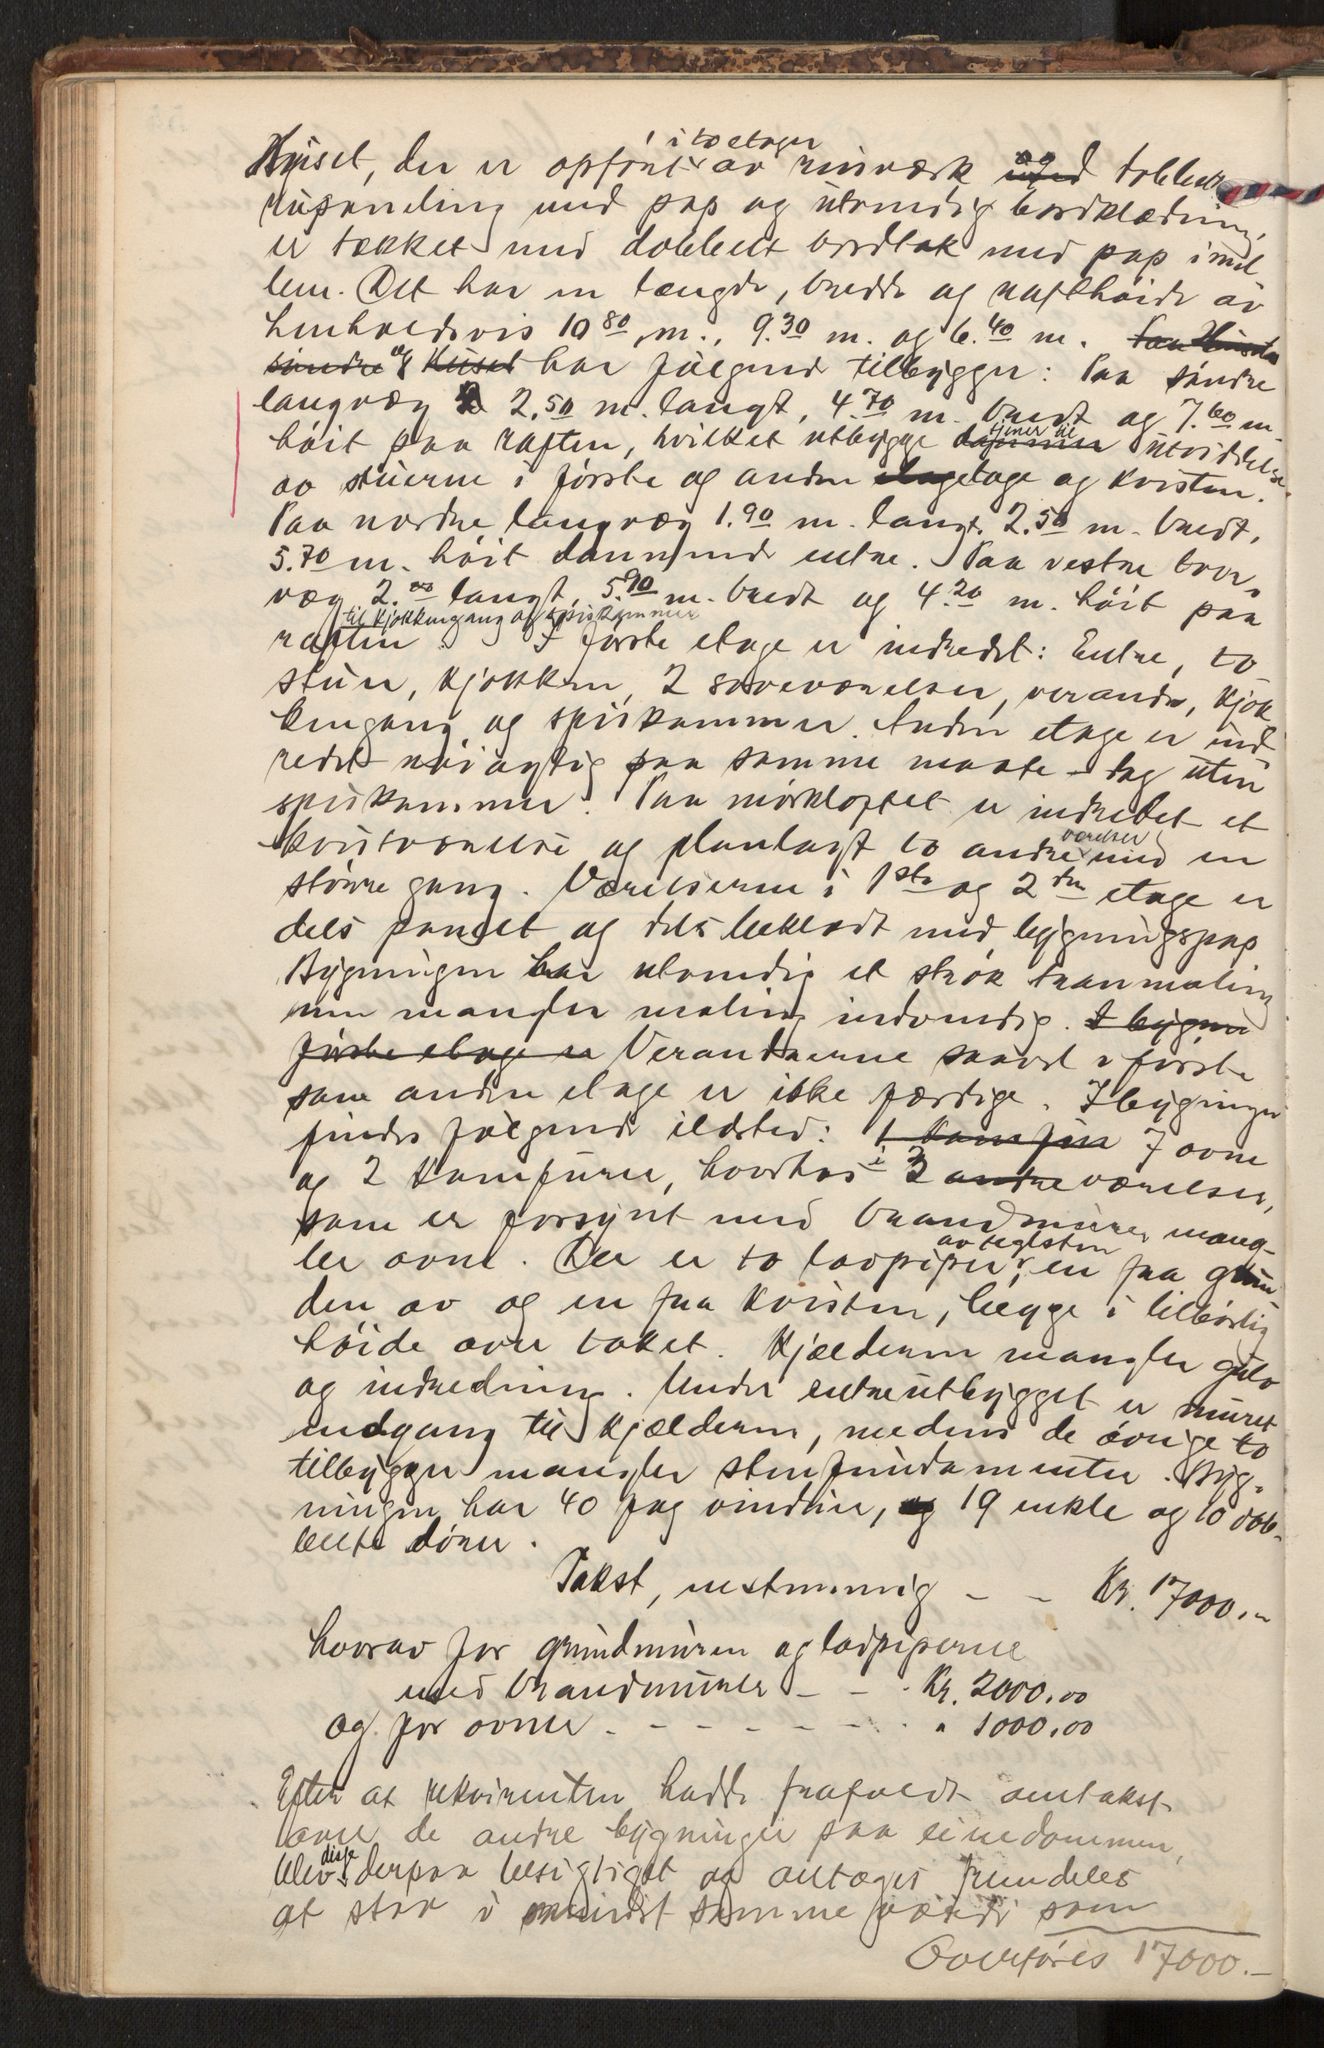 Huset, der er opført i to etager av reisværk og dobbelt
rupaneling med pap og utvendig bordklædning,
er tækket med dobbelt bordtak med pap imel
lem. Det har en længde, bredde og rafthøide av
henholdsvis 10 80 m., 9.30 m. og 6.40 m. Paa Husets
søndre og Huset har følgende tilbygger: Paa søndre
langvæg 2.50 m. langt, 4.70 m. bredt og 7.60 m.
høit paa raften, hvilket utbygge tjener til utvidelse
av stuerne i første og anden etage og kvisten.
Paa nordre langvæg 1.90 m. langt, 2.50 m. bredt,
5.70 m. høit dannende entre. Paa vestre tver-
væg 2.00 langt, 5.90 m. bredt og 4.20 m. høit paa
raften til kjøkkengang og spiskammer. I første etage er indredet: Entre, to
stuer, kjøkken, 2 soveværelser, veranda, kjøk
kengang og spiskammer. Anden etage er ind
redet nøiagtig paa samme maate - dog uten
spiskammer. Paa mørkloftet er indredet et
kvistværelse og planlagt to andre værelser med en
større gang. Værelserne i 1ste og 2den etage er
dels panelt og dels beklædt med bygningspap
Bygningen har utvendig et strøk tranmaling
men mangler maling indvendig. I bygnin
første etage er Verandaerne saavel i første
som anden etage er ikke færdige. I bygningen
findes følgende ildsted: 1 komfur 7 ovne
og 2 komfurer, hvorhos i 3 andre værelser,
som er forsynt med brandmurer, mang-
ler ovne. Der er to lavpiper av teglsten, en fra grun
den av og en fra kvisten, begge i tilbørlig
høide over taket. Kjælderen mangler gulv
og indredning. Under entreutbygget er muret
indgang til kjælderen, medens de øvrige to
tilbygger mangler stenfundamenter. Byg-
ningen har 40 fag vinduer, og 19 enkle og 10 dob-
belte dører.
Takst, enstemmig - - Kr. 17000.-
hvorav for grundmuren og ladpiperne
med brandmurer - - Kr. 2000.00
og for ovner - - - - - - " 1000.00
Efter at rekvirenten hadde frafaldt omtakst
over de andre bygninger paa eiendommen,
blev disse derpaa besigtiget og antages fremdeles
at staa i mindst samme værdi som
Overføres 17000.-